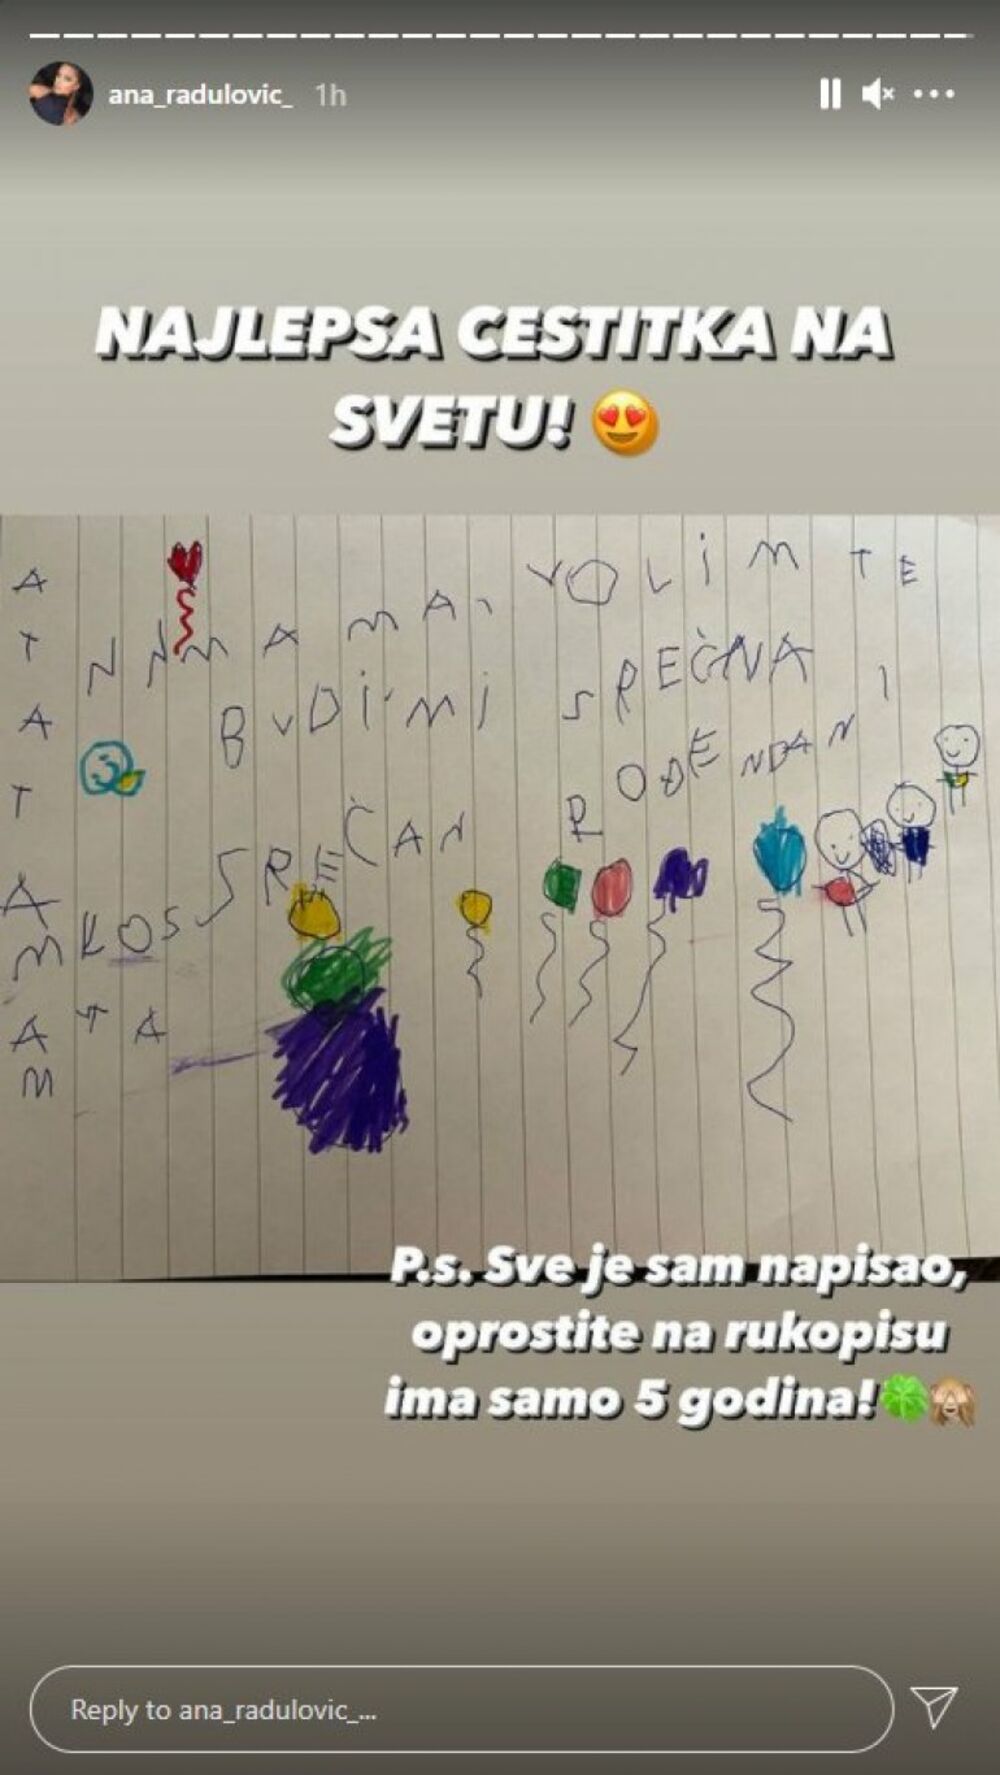 ana_radulovic_ 1h
NAJLEPSA CESTITKA NA
SVETU! 😍
MAMA, VOLIM TE
BUDI MI SREĆNA
SREĆAN ROĐENDAN
KOS
TA
MAMATATA
P.s. Sve je sam napisao,
oprostite na rukopisu
ima samo 5 godina!🍀🙈
Reply to ana_radulovic_...